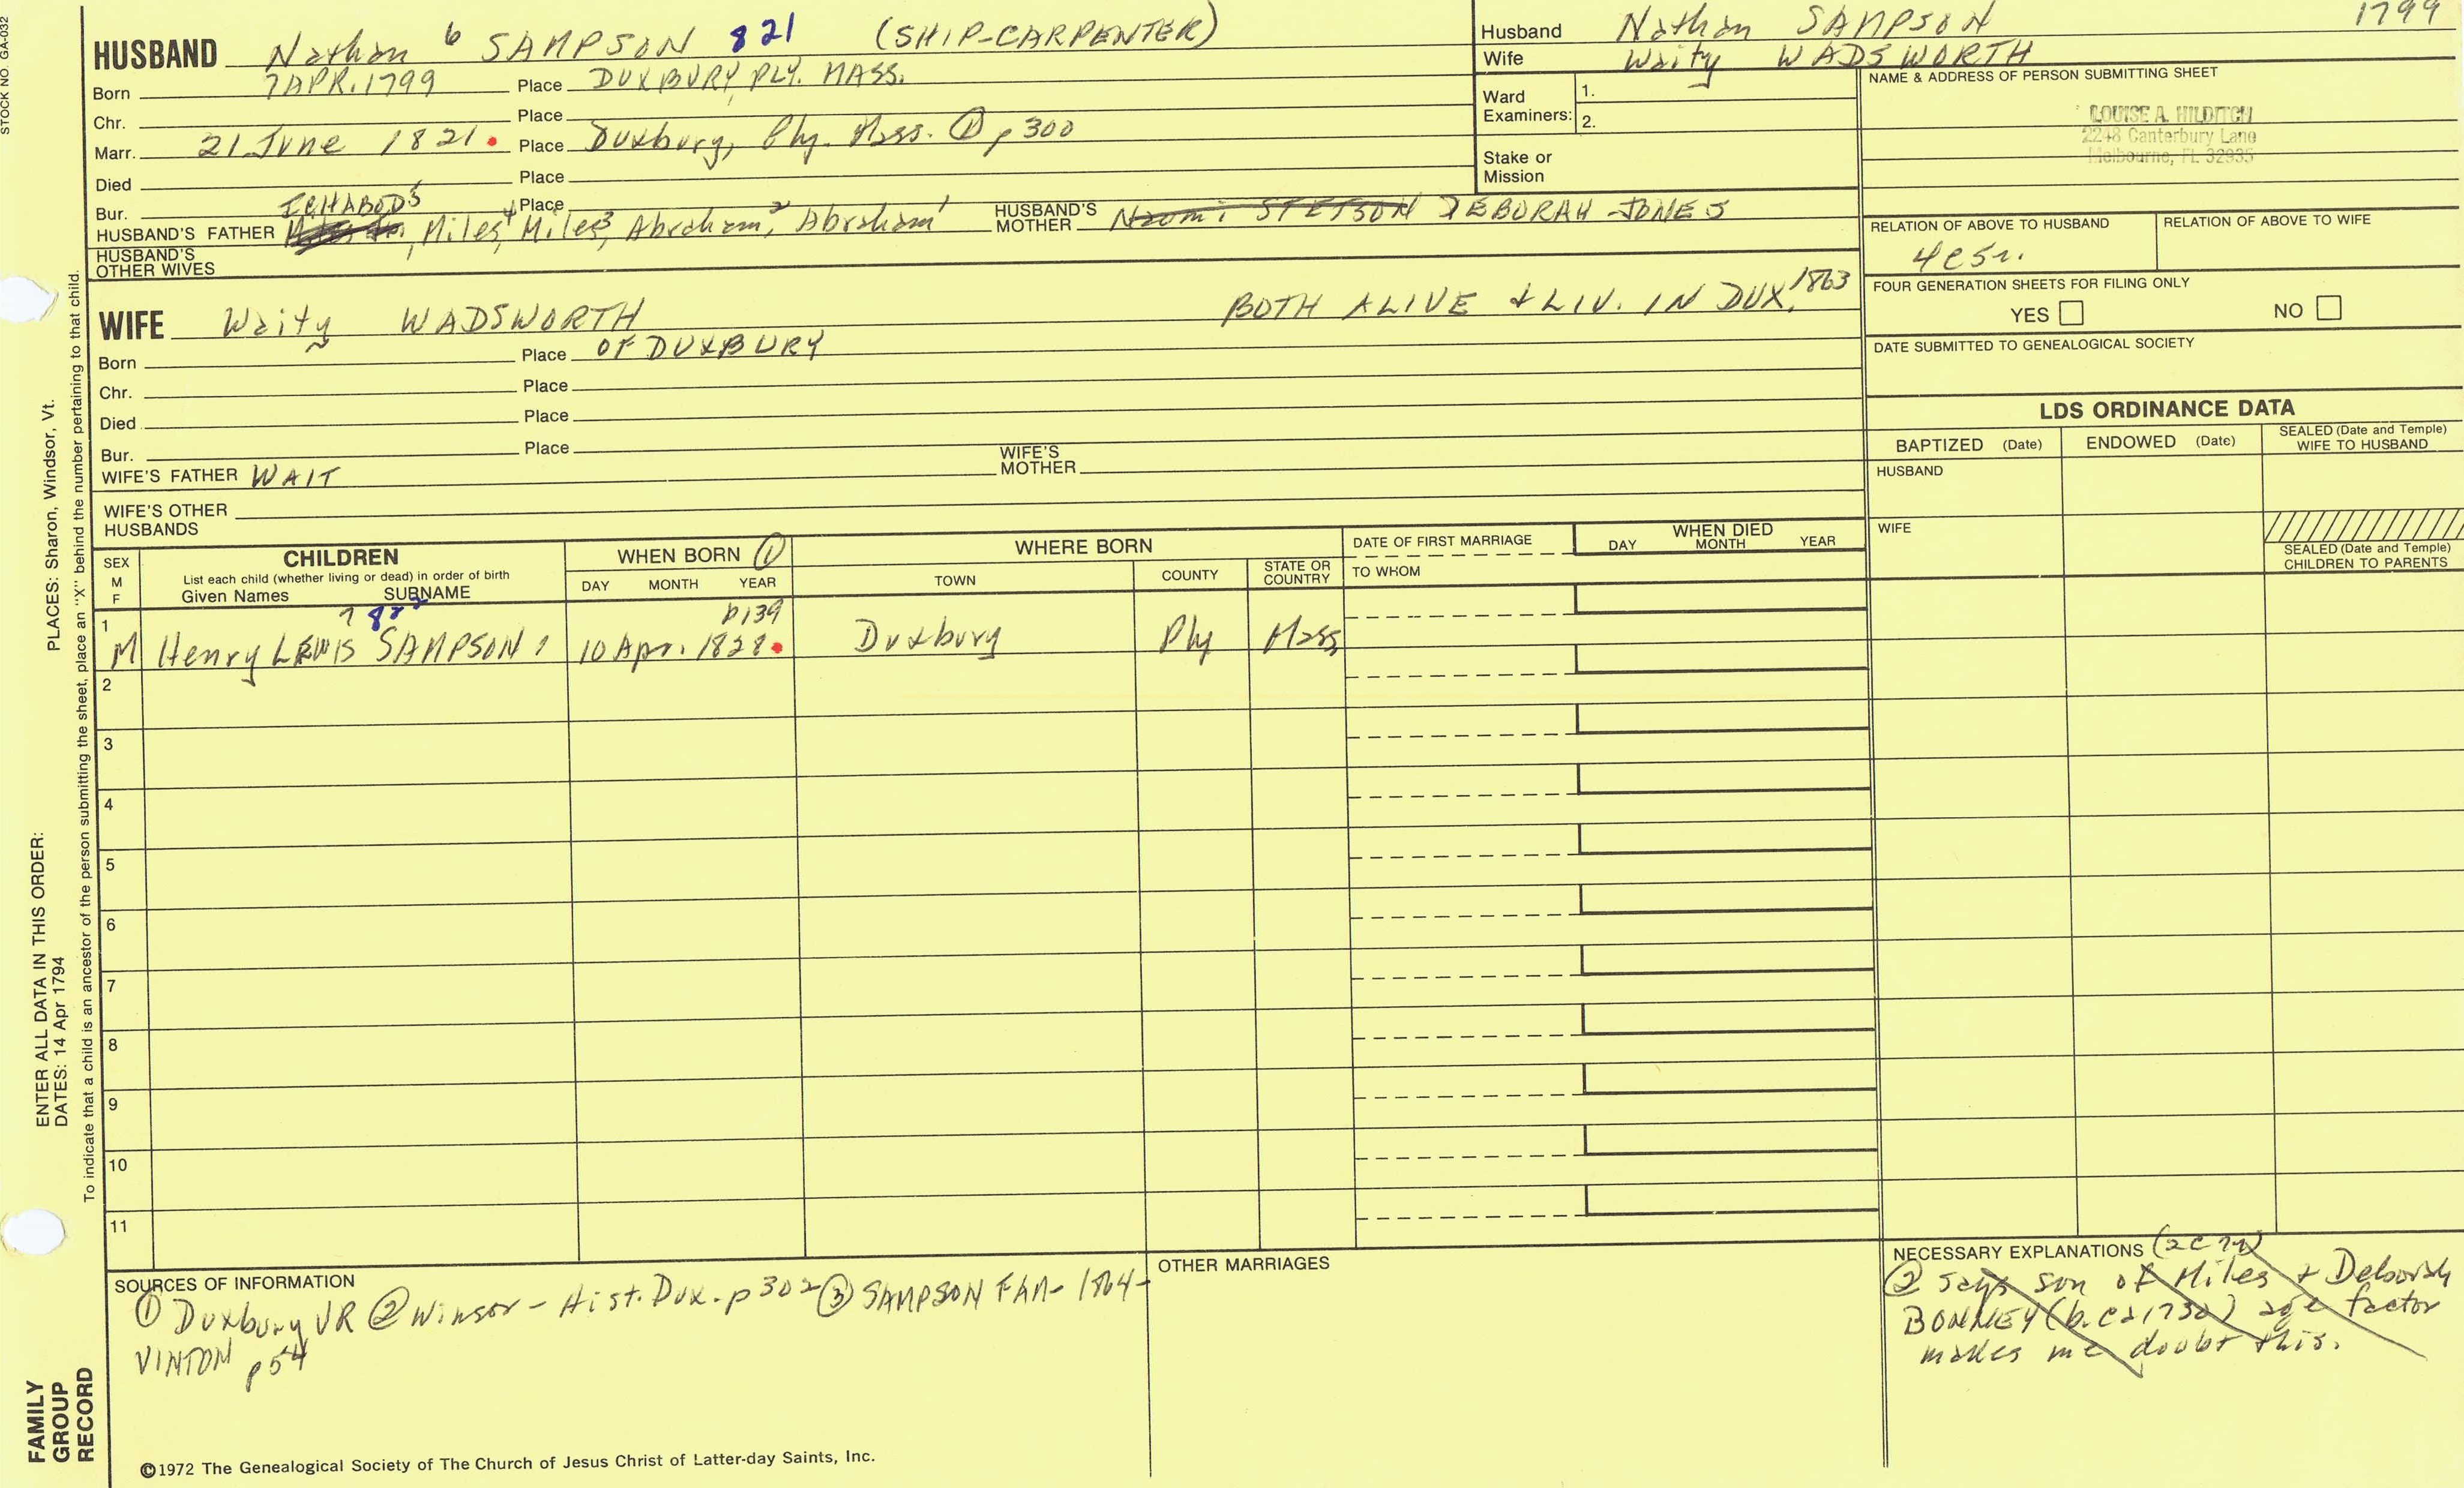 STOCK NO. GA-032
HUSBAND Nathan 6 SAMPSON 821 (SHIP-CARPENTER)
Born 7 APR. 1799 Place DUXBURY, PLY. MASS.
Chr. Place
Marr. 21 June 1821. Place Duxbury, Ply. Mass. ① p 300
Died Place
Bur. Place
HUSBAND'S FATHER ICHABOD5, Miles4, Miles3, Abraham2, Abraham1 HUSBAND'S MOTHER Naomi STETSON DEBORAH JONES
HUSBAND'S OTHER WIVES
Husband Nathan SAMPSON 1799
Wife Waity WADSWORTH
Ward Examiners: 1.
2.
Stake or Mission
NAME & ADDRESS OF PERSON SUBMITTING SHEET
LOUISE A. HILDITCH
2248 Canterbury Lane
Melbourne, FL 32935
RELATION OF ABOVE TO HUSBAND RELATION OF ABOVE TO WIFE
4C5r.
FOUR GENERATION SHEETS FOR FILING ONLY
YES NO
DATE SUBMITTED TO GENEALOGICAL SOCIETY
WIFE Waity WADSWORTH BOTH ALIVE & LIV. IN DUX. 1863
Born Place OF DUXBURY
Chr. Place
Died Place
Bur. Place
WIFE'S FATHER WAIT WIFE'S MOTHER
WIFE'S OTHER HUSBANDS
LDS ORDINANCE DATA
BAPTIZED (Date) ENDOWED (Date) SEALED (Date and Temple) WIFE TO HUSBAND
HUSBAND
WIFE
SEALED (Date and Temple) CHILDREN TO PARENTS
SEX M F
CHILDREN
List each child (whether living or dead) in order of birth
Given Names SURNAME
WHEN BORN ①
DAY MONTH YEAR
WHERE BORN
TOWN COUNTY STATE OR COUNTRY
DATE OF FIRST MARRIAGE
TO WHOM
WHEN DIED
DAY MONTH YEAR
7 822 p139
1 M Henry LEWIS SAMPSON 10 Apr. 1828. Duxbury Ply Mass
2
3
4
5
6
7
8
9
10
11
SOURCES OF INFORMATION
① Duxbury VR ② Winsor - Hist. Dux. p 302 ③ SAMPSON FAM - 1864 -
VINTON p54
OTHER MARRIAGES
NECESSARY EXPLANATIONS
② says son of Miles & Deborah
BONNEY (b. ca 1730) age factor
makes me doubt this.
©1972 The Genealogical Society of The Church of Jesus Christ of Latter-day Saints, Inc.
FAMILY GROUP RECORD
ENTER ALL DATA IN THIS ORDER:
DATES: 14 Apr 1794
PLACES: Sharon, Windsor, Vt.
To indicate that a child is an ancestor of the person submitting the sheet, place an "X" behind the number pertaining to that child.